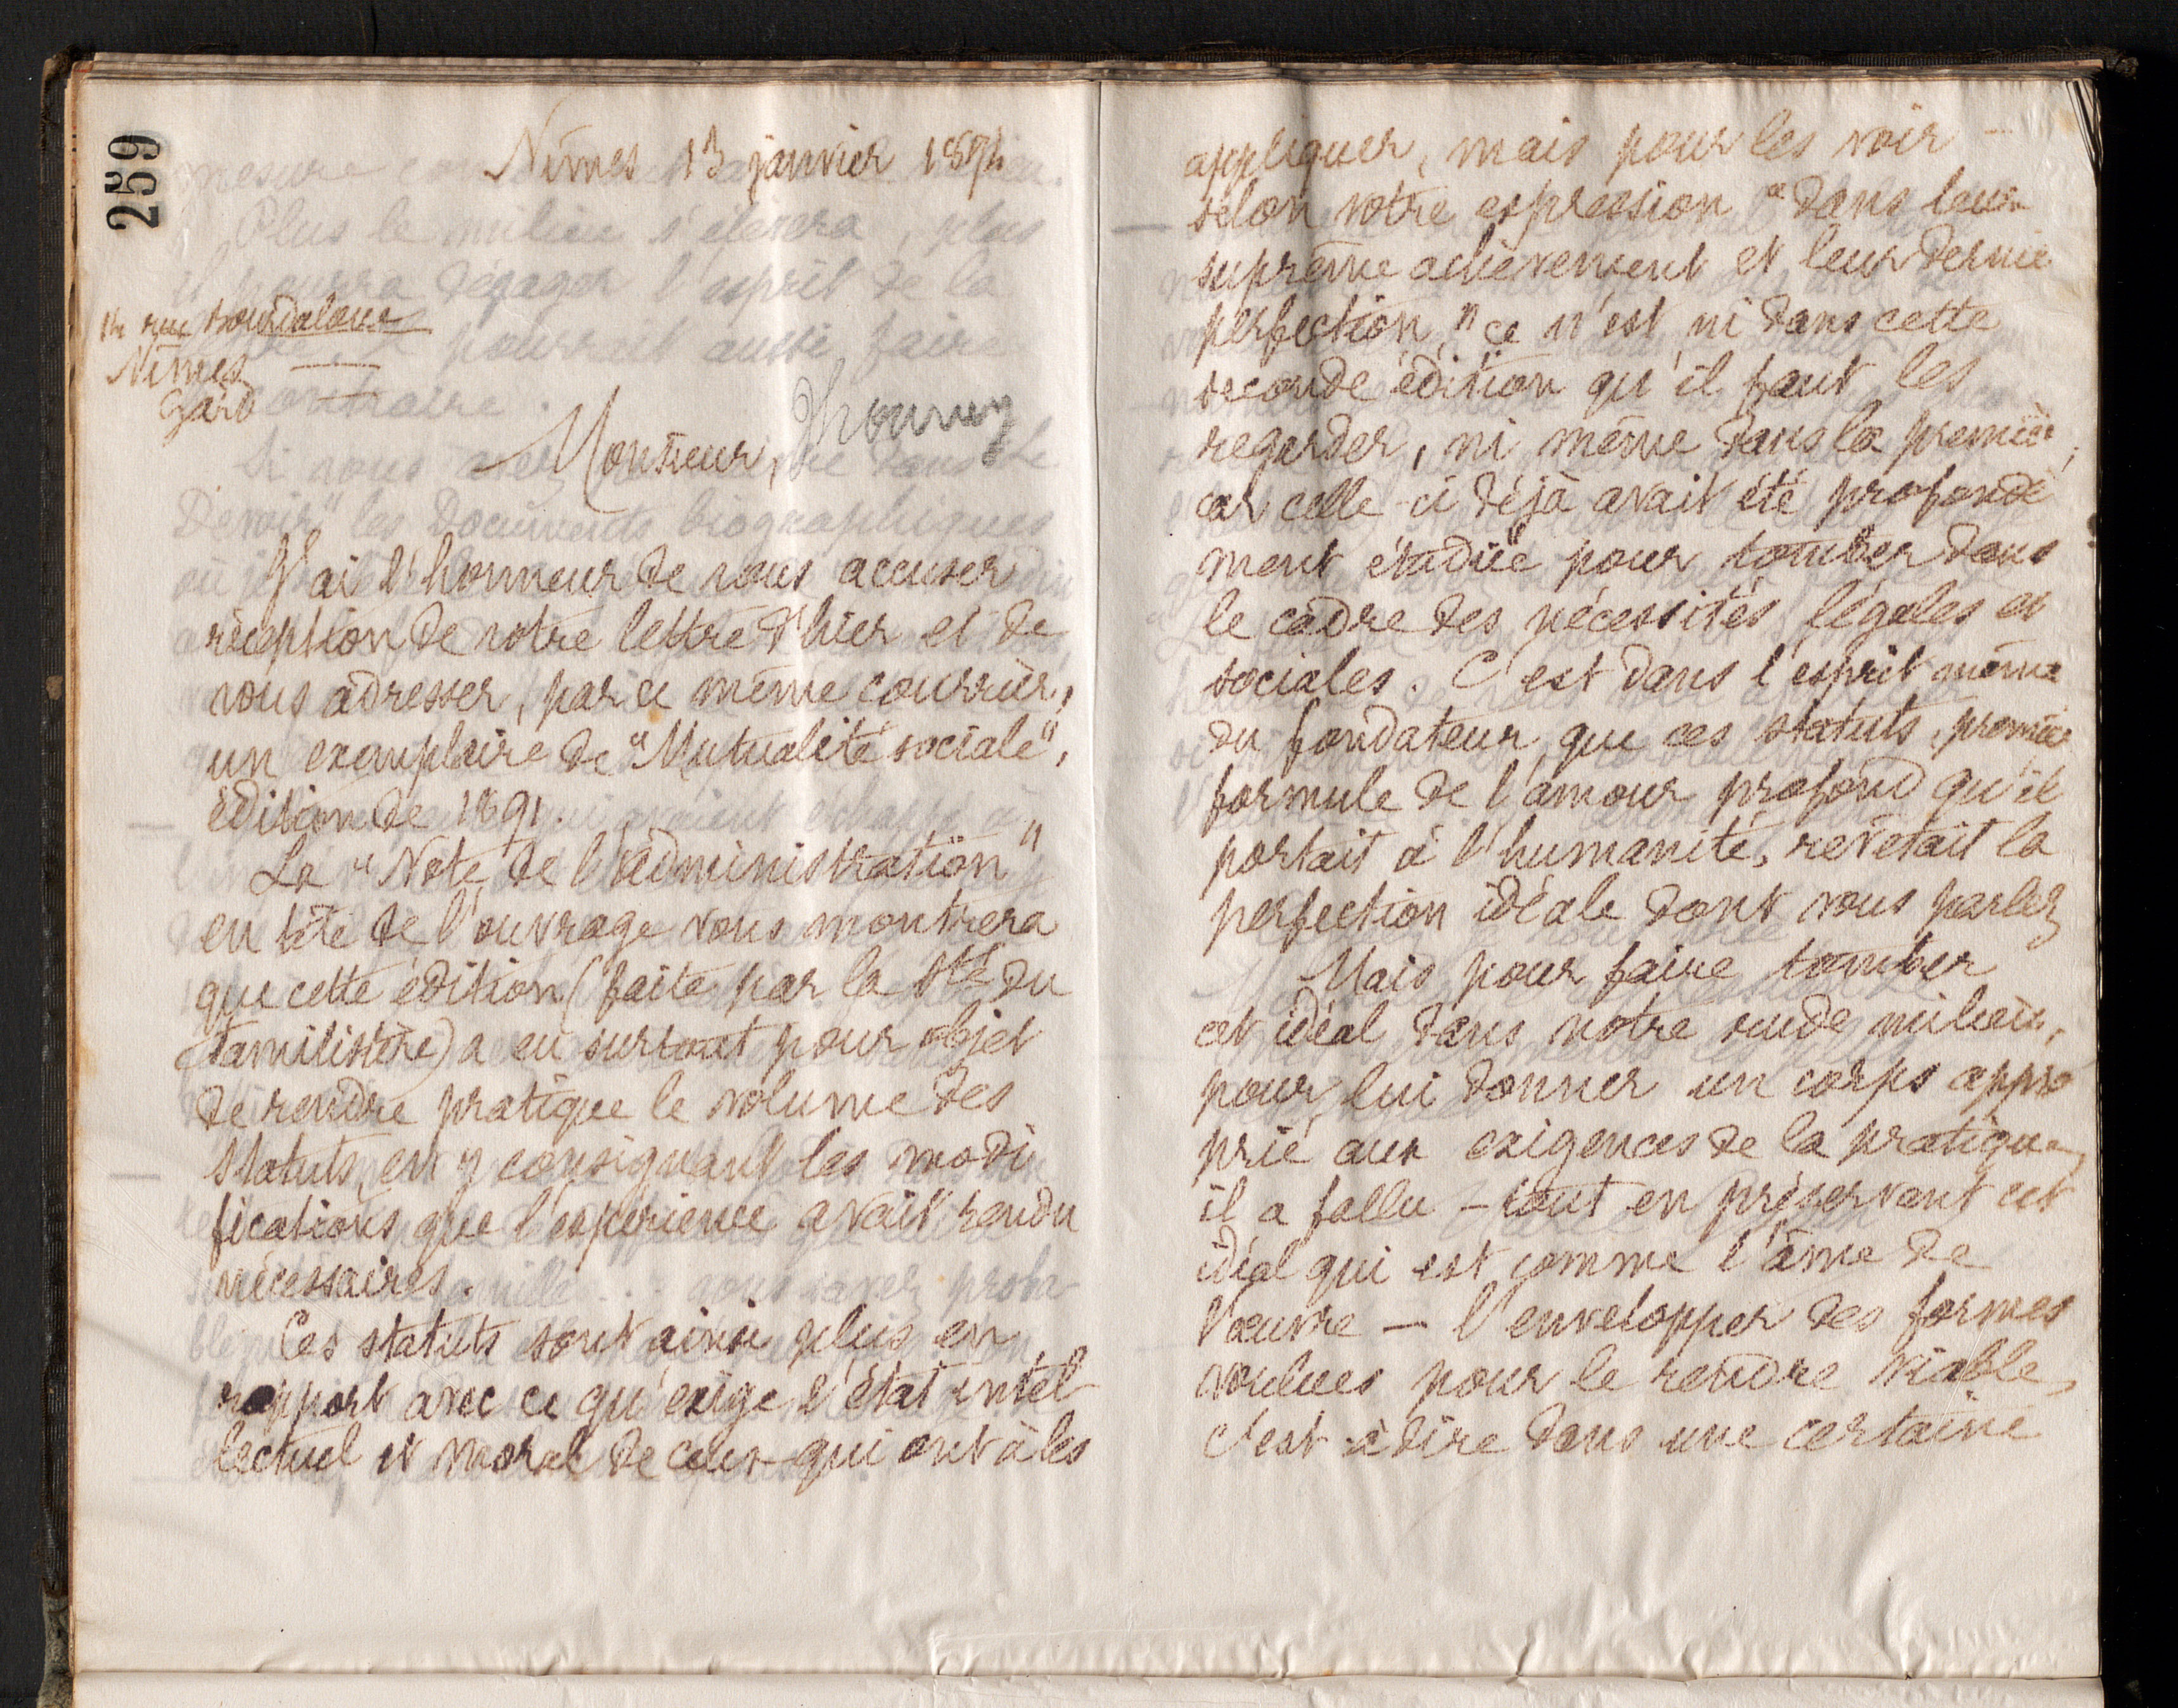 259
Nîmes 13 janvier 1894
14 rue Bourdaloue
Nîmes
Gard
Monsieur,
J'ai l'honneur de vous accuser
réception de votre lettre d'hier et de
vous adresser, par ce même courrier,
un exemplaire de "Mutualité sociale",
édition de 1891.
La "Note de l'administration"
en tête de l'ouvrage vous montrera
que cette édition (faite par la Sté du
Familistère) a eu surtout pour objet
de rendre pratique le volume des
statuts, en y consignant les modi
fications que l'expérience avait rendu
nécessaires.
Ces statuts sont ainsi plus en
rapport avec ce qu'exige l'état intel-
lectuel et moral de ceux qui ont à les
appliquer, mais pour les voir -
selon votre expression "dans leur
suprême achèvement et leur dernie
perfection," ce n'est ni dans cette
seconde édition qu'il faut les
regarder, ni même dans la premièr,
car celle-ci déjà avait été profondé
ment étudiée pour tomber dans
le cadre des nécessités légales et
sociales. C'est dans l'esprit même
du fondateur que ces statuts, premièr
formule de l'amour profond qu'il
portait à l'humanité, revêtait la
perfection idéale dont vous parlez
Mais pour faire tomber
cet idéal dans notre rude milieu,
pour lui donner un corps appro
prié aux exigences de la pratique,
il a fallu - tout en préservant cet
idéal qui est comme l'âme de
l'œuvre - l'envelopper des formes
voulues pour le rendre viable,
c'est-à-dire dans une certaine